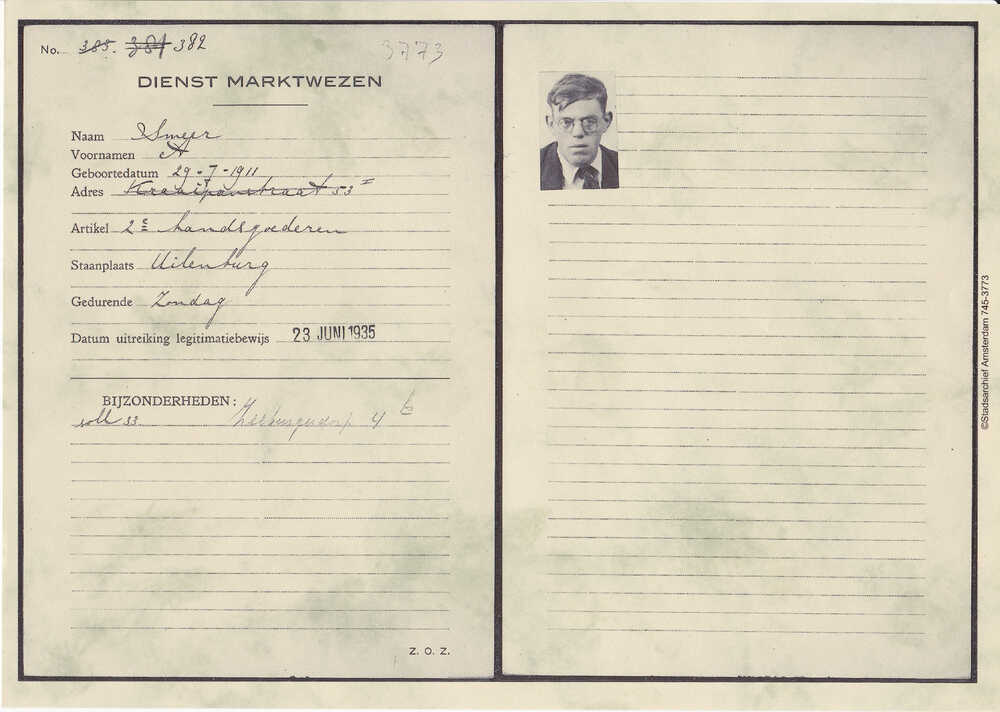 No. 385. 381 382
3773
DIENST MARKTWEZEN
Naam Smeer
Voornamen A
Geboortedatum 29-7-1911
Adres Kraaipanstraat 53 I
Artikel 2e handsgoederen
Staanplaats Uilenburg
Gedurende Zondag
Datum uitreiking legitimatiebewijs 23 JUNI 1935
BIJZONDERHEDEN:
soll 33 Zeeburgerdorp 4
Z. O. Z.
©Stadsarchief Amsterdam 745-3773